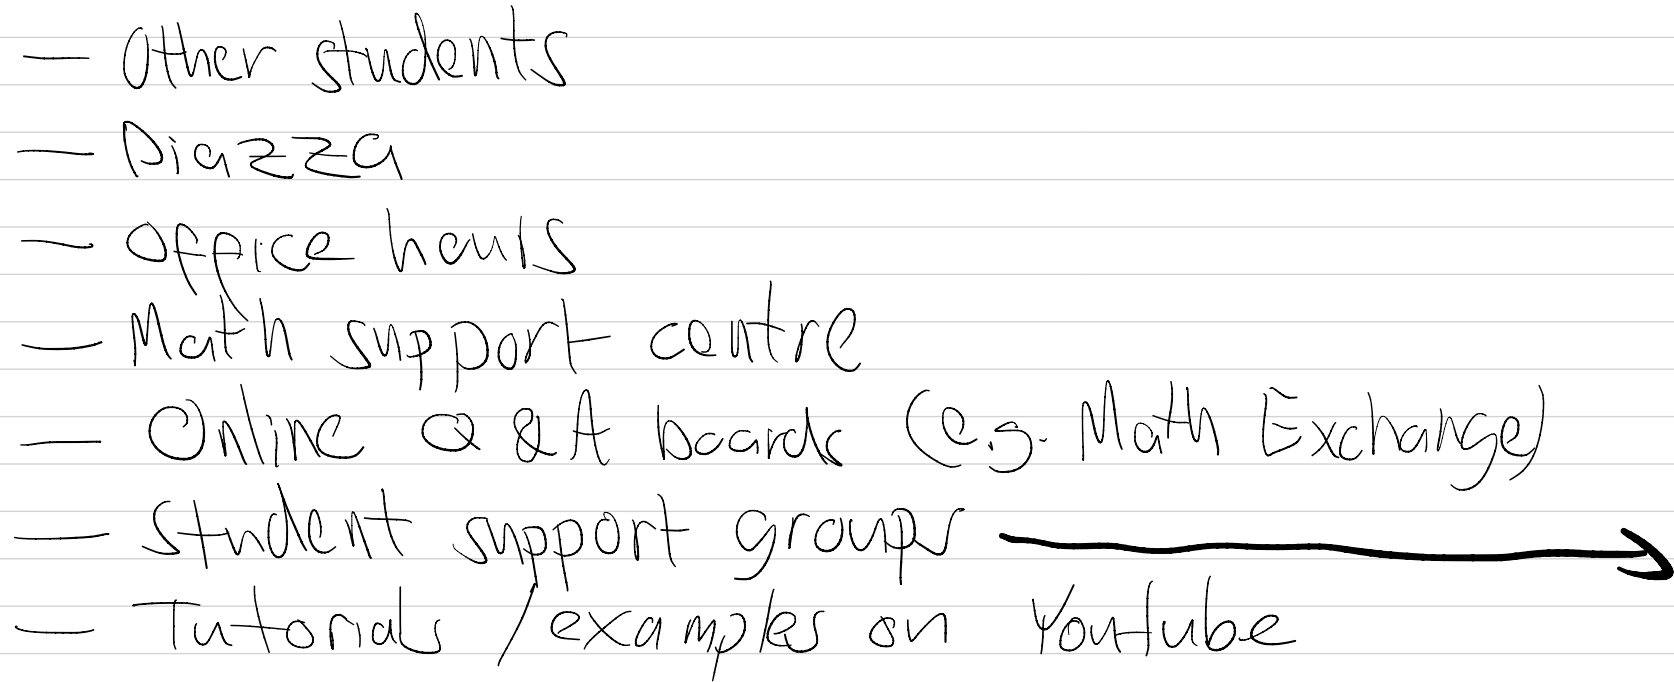 — Other students
— Piazza
— Office hours
— Math support centre
— Online Q & A boards (e.g. Math Exchange)
— Student support groups →
— Tutorials / examples on Youtube